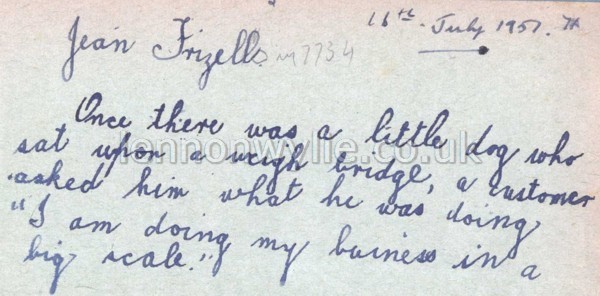 16th July 1957. H
Jean Frizells m7734
Once there was a little dog who
sat upon a weigh bridge, a customer
asked him what he was doing
"I am doing my buiness in a
big scale."
lennonwylie.co.uk